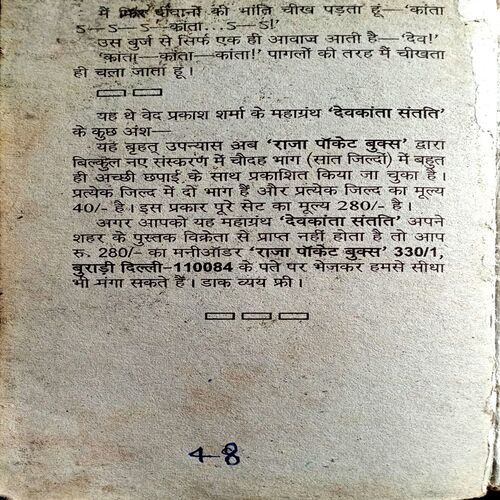 में फिर दीवानों की भांति चीख पड़ता हूं—'कांता
S—S—S—'कांता...S—S!'
उस बुर्ज से सिर्फ एक ही आवाज आती है—'देव!'
'कांता—कांता—कांता!' पागलों की तरह मैं चीखता
ही चला जाता हूं।
यह थे वेद प्रकाश शर्मा के महाग्रंथ 'देवकांता संतति'
के कुछ अंश—
यह बृहत् उपन्यास अब 'राजा पॉकेट बुक्स' द्वारा
बिल्कुल नए संस्करण में चौदह भाग (सात जिल्दों) में बहुत
ही अच्छी छपाई के साथ प्रकाशित किया जा चुका है।
प्रत्येक जिल्द में दो भाग हैं और प्रत्येक जिल्द का मूल्य
40/- है। इस प्रकार पूरे सेट का मूल्य 280/- है।
अगर आपको यह महाग्रंथ 'देवकांता संतति' अपने
शहर के पुस्तक विक्रेता से प्राप्त नहीं होता है तो आप
रु. 280/- का मनीऑर्डर 'राजा पॉकेट बुक्स' 330/1,
बुराड़ी दिल्ली-110084 के पते पर भेजकर हमसे सीधा
भी मंगा सकते हैं। डाक व्यय फ्री।
48